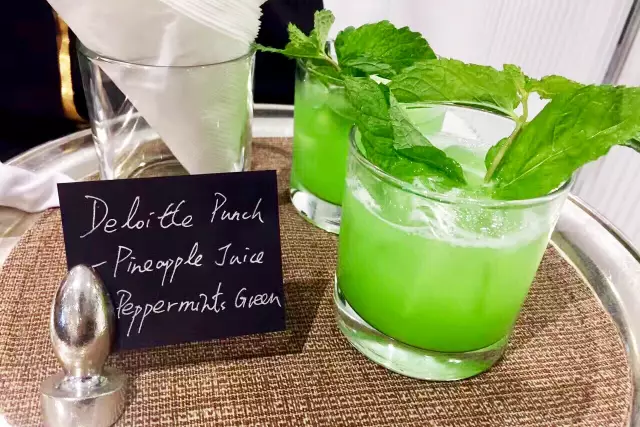 Deloitte Punch
- Pineapple Juice
Peppermints Green